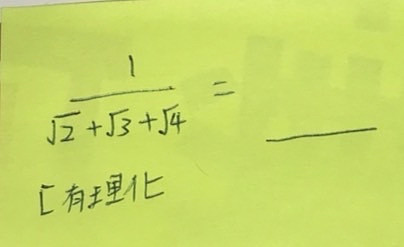 1/(√2+√3+√4) = ____
[有理化